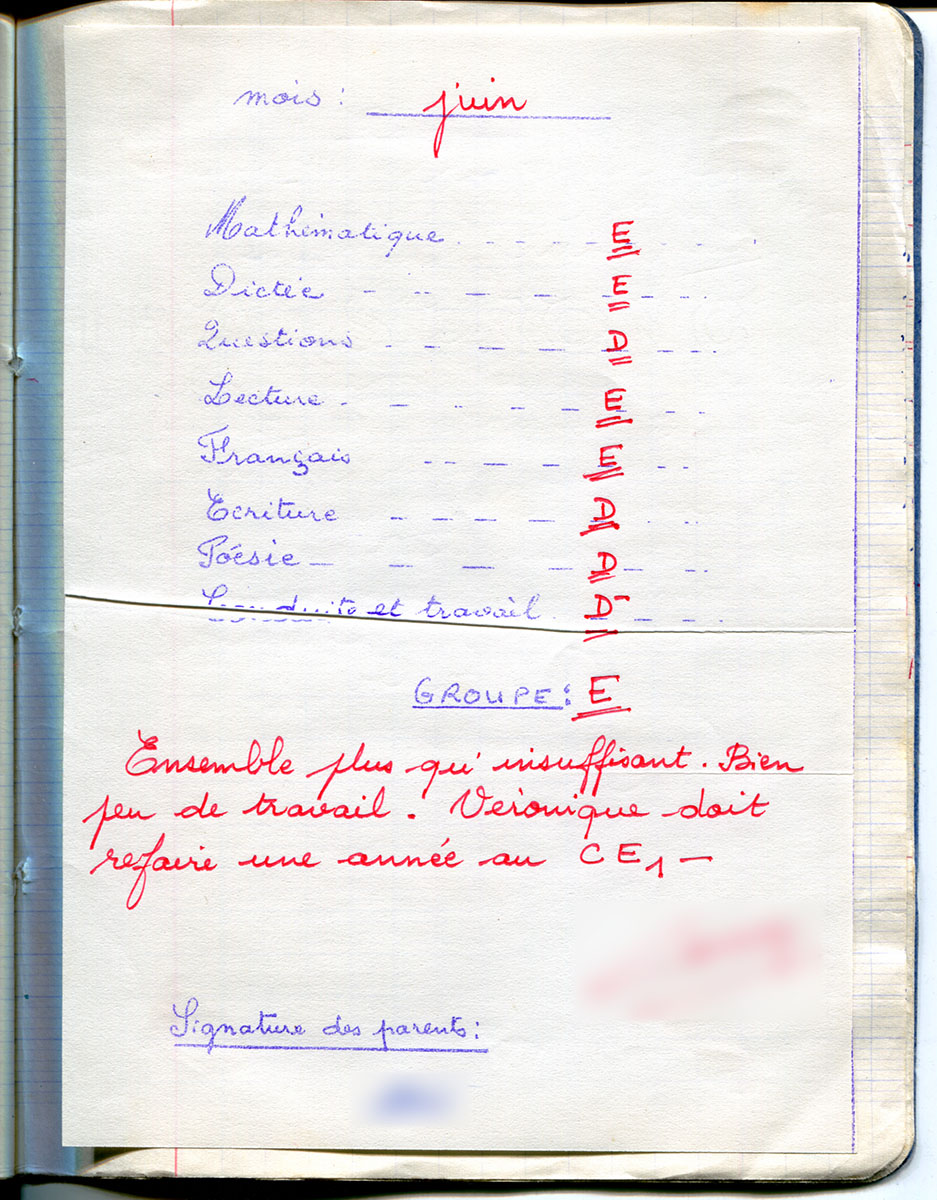 mois : juin
Mathématique E
Dictée E
Questions D
Lecture E
Français E
Ecriture D
Poésie D
Conduite et travail D
GROUPE : E
Ensemble plus qu'insuffisant. Bien
peu de travail. Véronique doit
refaire une année au CE1 -
Signature des parents :